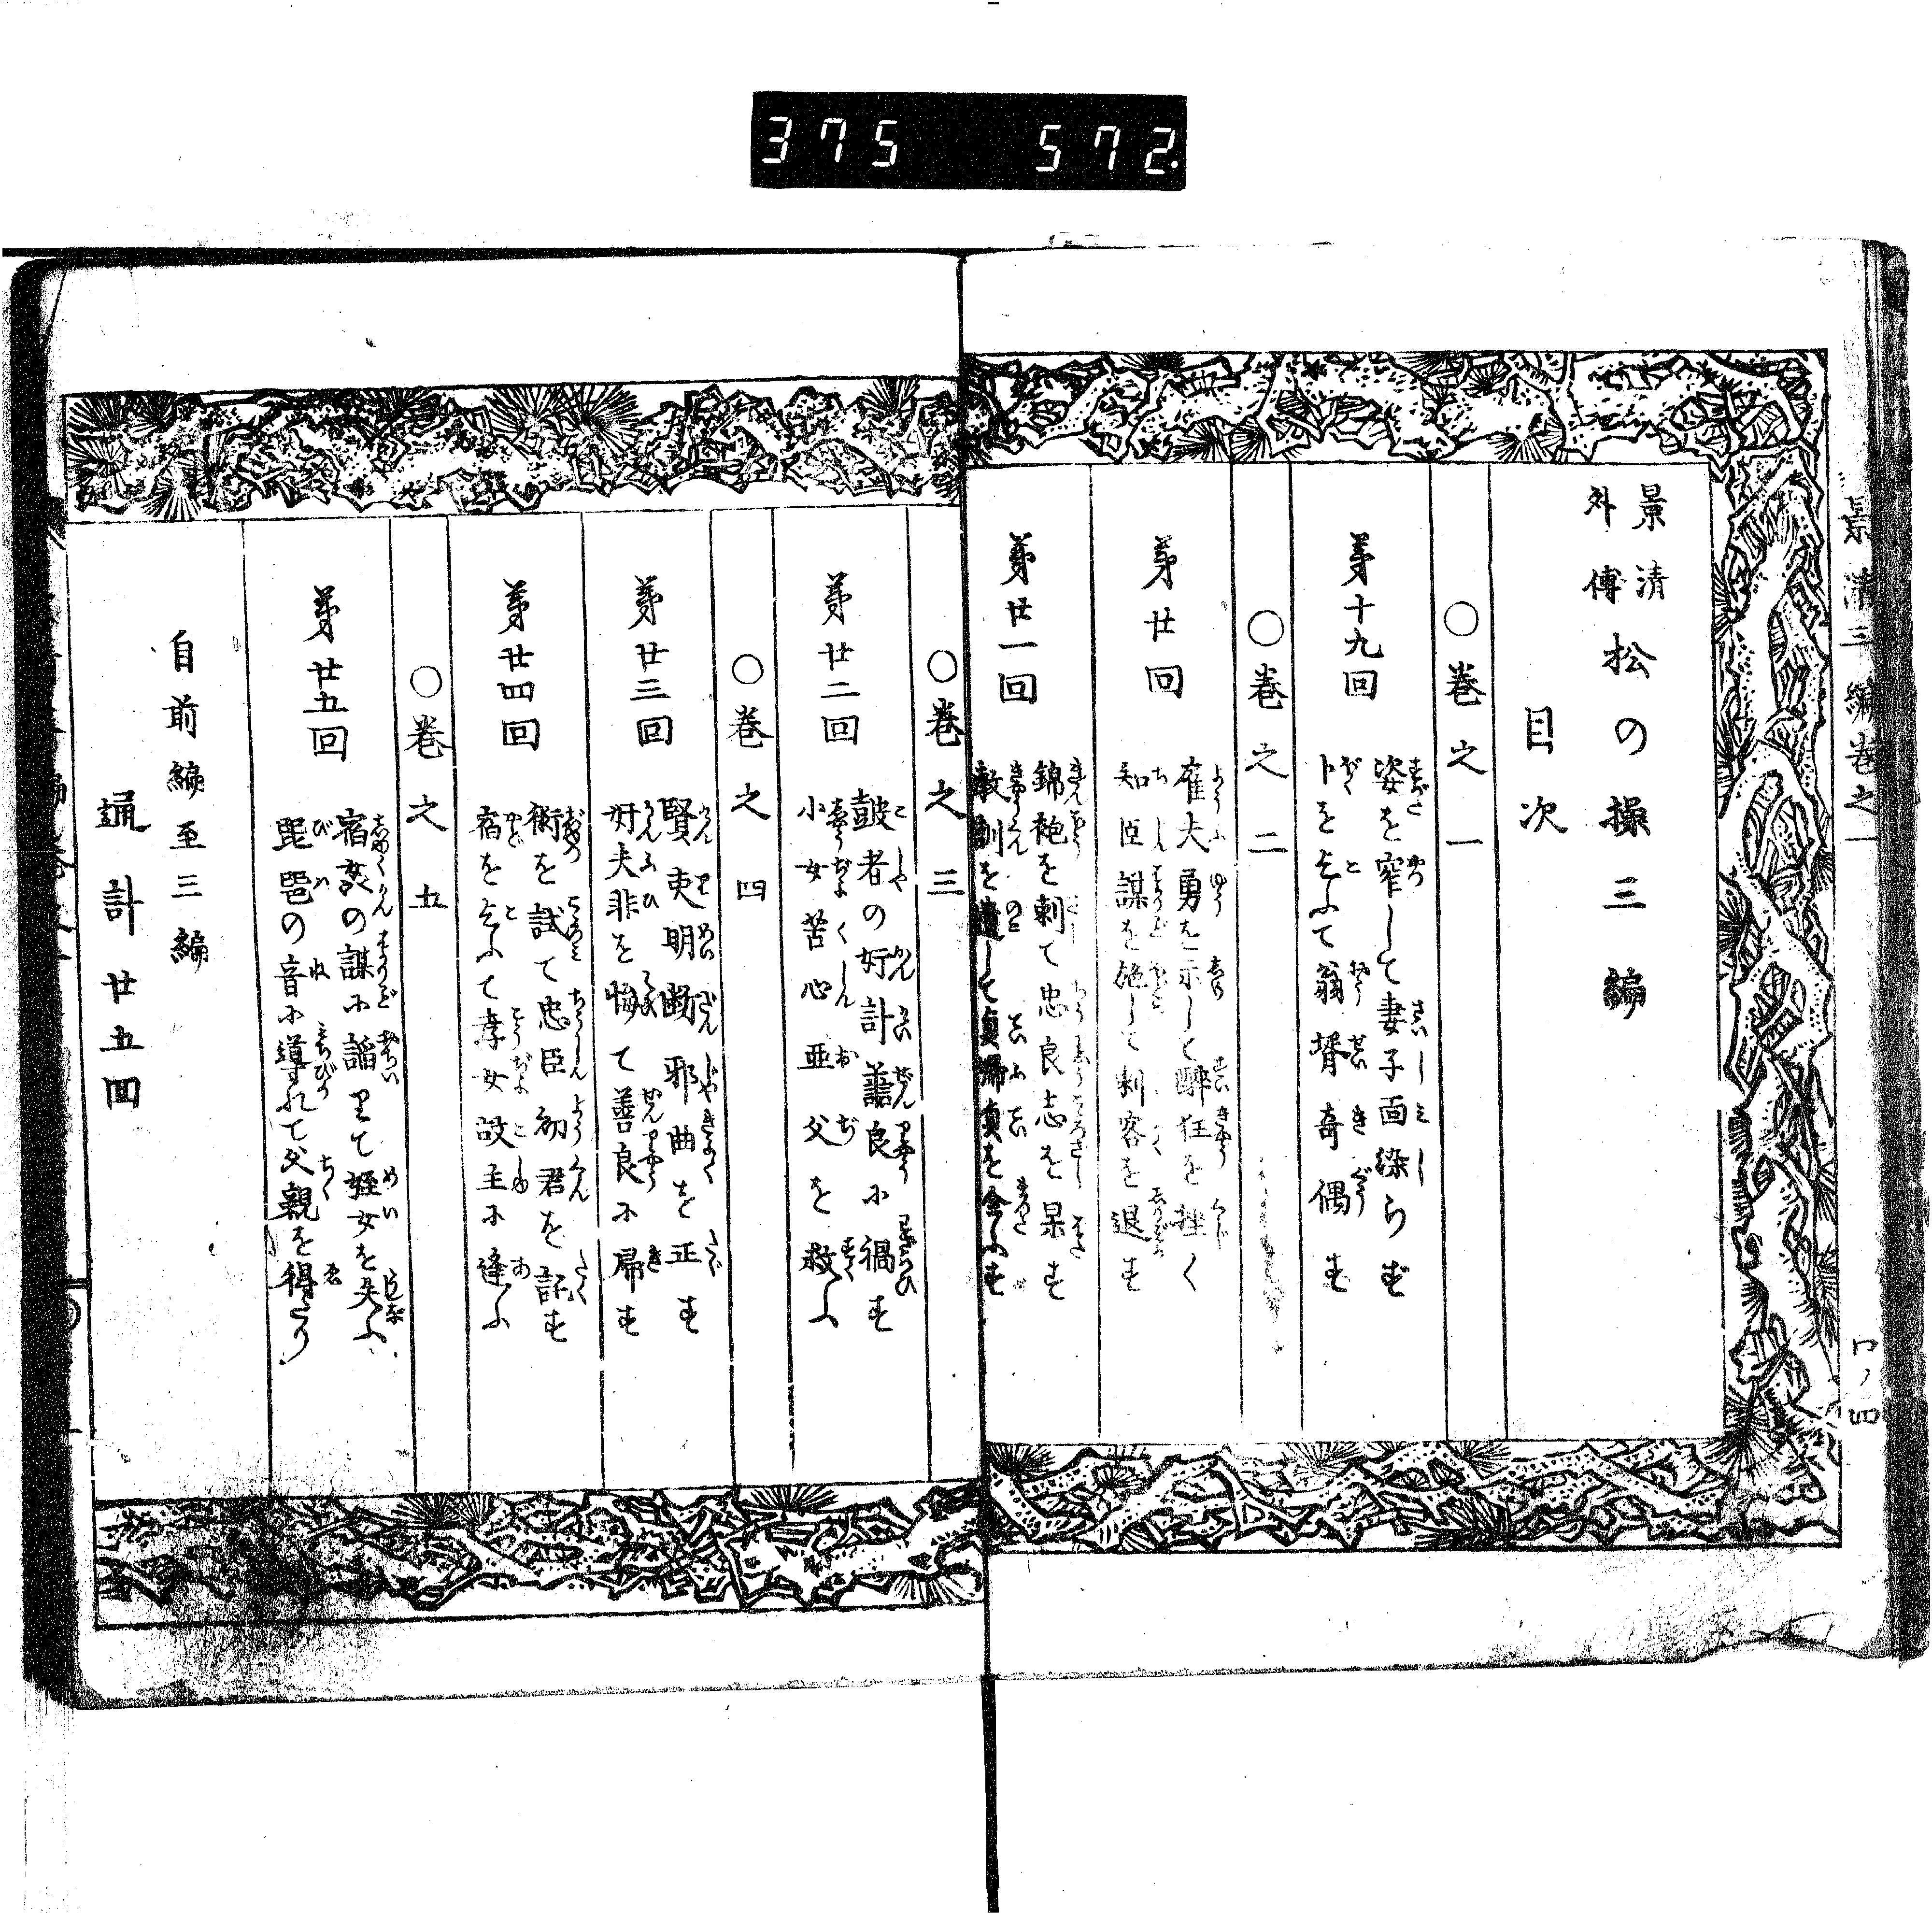 375 572.
景清三編巻之一
景清
外傳
松の操三編
目次
○巻之一
第十九回
姿を窄して妻子面染らず
卜をとふて翁壻奇偶す
○巻之二
第廿回
雇夫勇を示して酔狂を挫く
知臣謀を施して刺客を退す
第廿一回
錦袍を刺て忠良志を杲す
教訓を遺して貞婦貞を全ふす
○巻之三
第廿二回
瞽者の奸計善良小禍す
小女苦心亜父を救ふ
○巻之四
第廿三回
賢吏明断邪曲を正す
奸夫非を悔て善良小帰す
第廿四回
術を試て忠臣初君を託す
宿をとふて孝女故主小逢ふ
○巻之五
第廿五回
謀小諂りて姪女を失ふ
琵琶の音小導れて父親を得たり
自前編至三編
通計廿五回